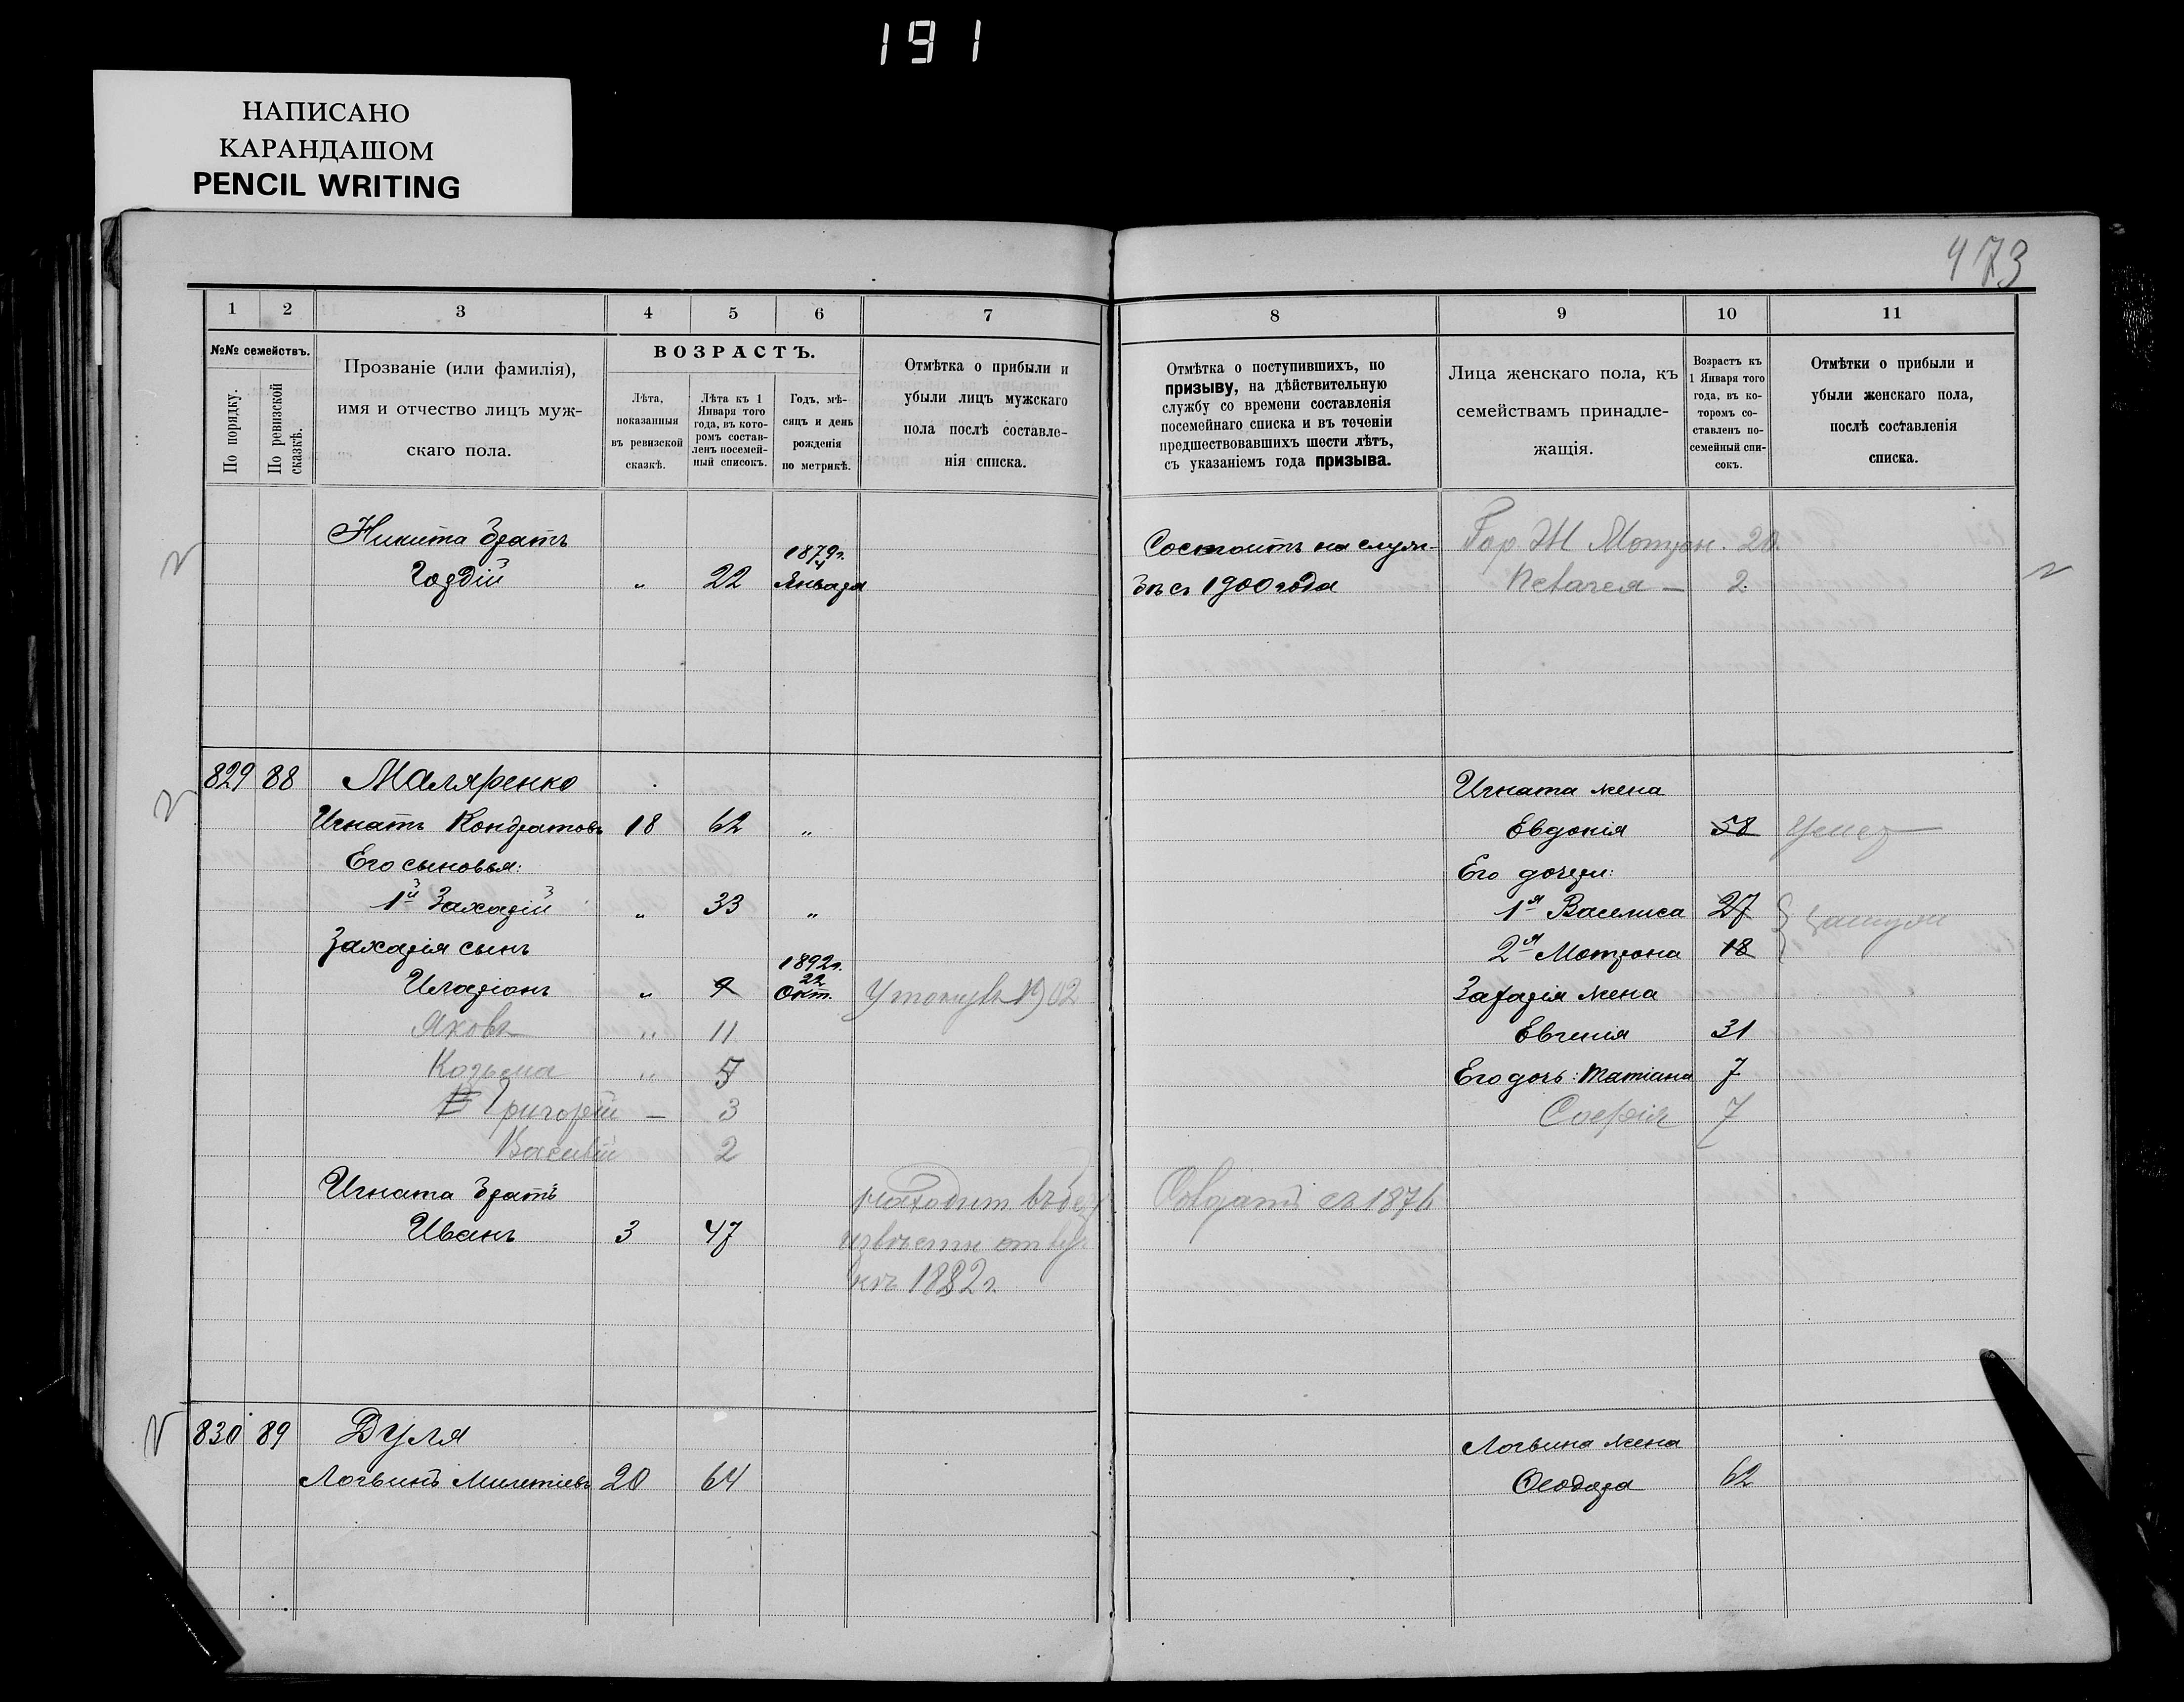 191
НАПИСАНО
КАРАНДАШОМ
PENCIL WRITING
473
1 2 3 4 5 6 7 8 9 10 11
№№ семействъ.
По порядку.
По ревизской сказкѣ.
Прозваніе (или фамилія),
имя и отчество лицъ муж-
скаго пола.
ВОЗРАСТЪ.
Лѣта,
показанныя
въ ревизской
сказкѣ.
Лѣта къ 1
Января того
года, въ кото-
ромъ состав-
ленъ посемей-
ный списокъ.
Годъ, мѣ-
сяцъ и день
рожденія
по метрикѣ.
Отмѣтка о прибыли и
убыли лицъ мужскаго
пола послѣ составле-
нія списка.
Отмѣтка о поступившихъ, по
призыву, на дѣйствительную
службу со времени составленія
посемейнаго списка и въ теченіи
предшествовавшихъ шести лѣтъ,
съ указаніемъ года призыва.
Лица женскаго пола, къ
семействамъ принадле-
жащія.
Возрастъ къ
1 Января того
года, въ ко-
торомъ со-
ставленъ по-
семейный спи-
сокъ.
Отмѣтки о прибыли и
убыли женскаго пола,
послѣ составленія
списка.
Никита братъ 1879г. Состоитъ на служ- Гор. Ж Мотрон. 20.
Гордій „ 22 4 Января бѣ съ 1900 года 2.
829 88 Маляренко Игната жена
Игнатъ Кондратовъ 18 62 „ Евдокія 58 Умер
Его сыновья: Его дочери:
1й Захарій „ 33 „ 1я Василиса 27
Захарія сынъ 1892г. 2я Мотрона 18 замуж
Иларіонъ „ 9 22 Окт. Утонувъ 1902 Захарія жена
Яковъ „ 11 Евгенія 31
Козьма „ 5 Его дочь: Татіана 7
Григорій — 3 Софія 7
Василій 2
Игната братъ находит. въ без Солдатъ съ 1876
Иванъ 3 47 извѣстн отлуч
кѣ 1882г.
830 89 Дуля Логвина жена
Логвинъ Милетіевъ 20 64 Феодора 62